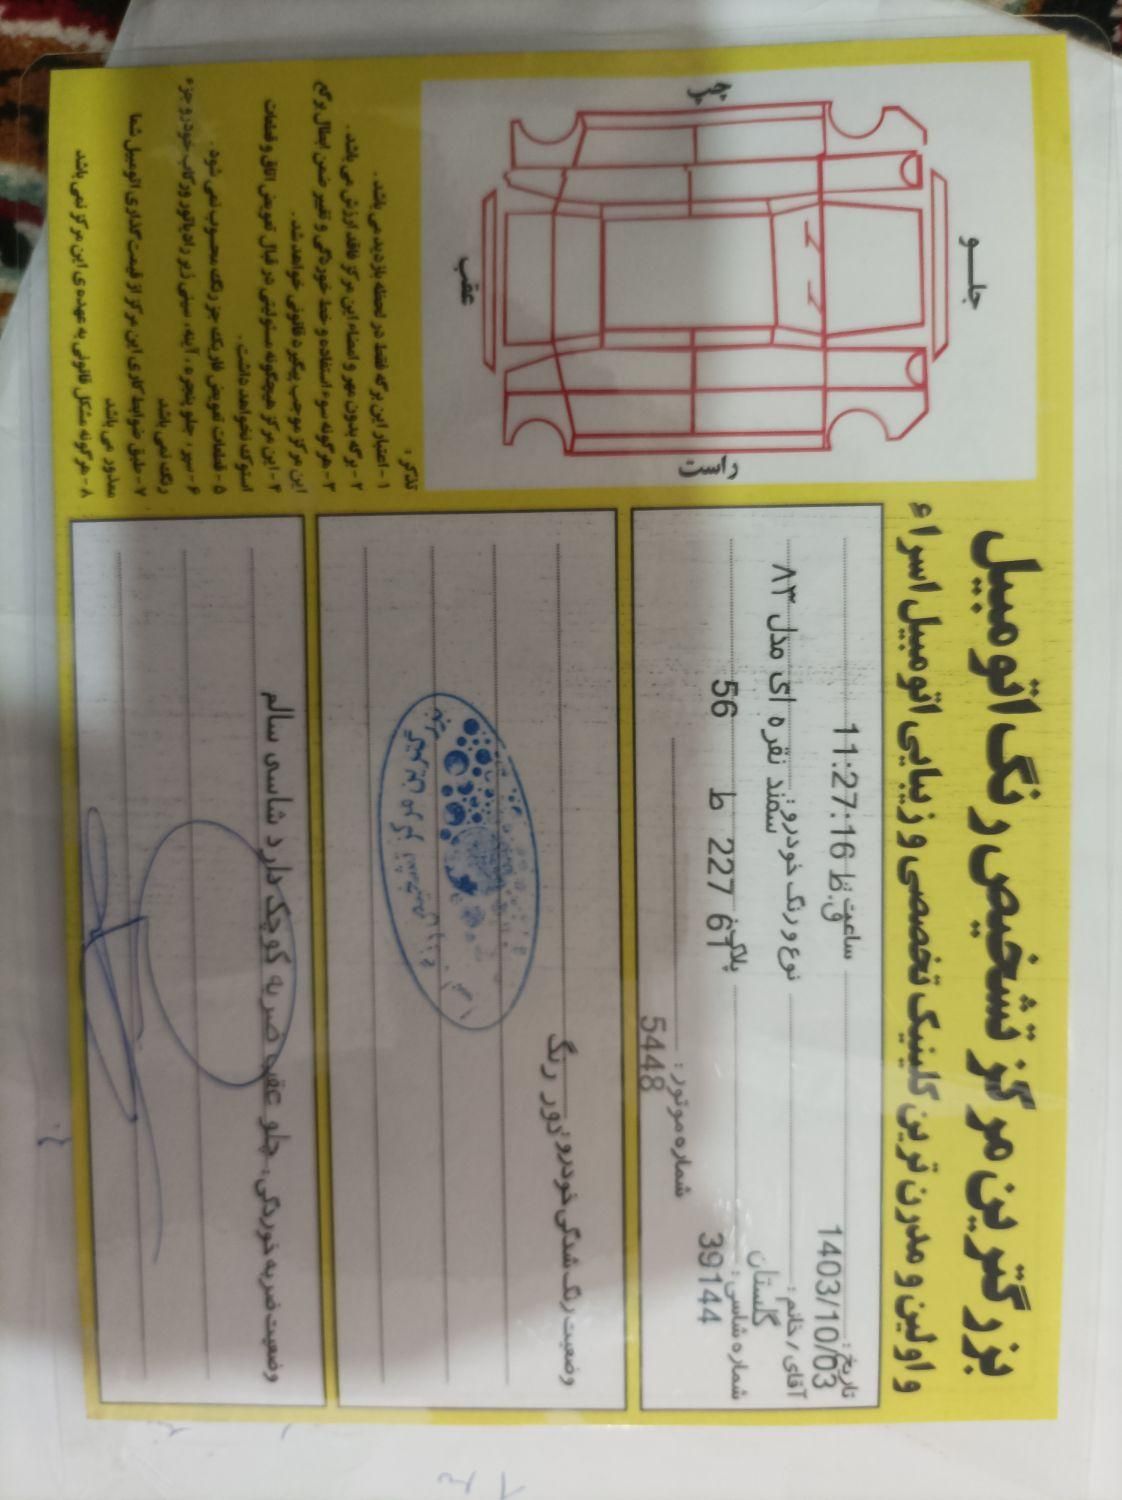 بزرگترین مرکز تشخیص رنگ اتومبیل
و اولین و مدرن ترین کلینیک تخصصی و زیبایی اتومبیل اسراء
تاریخ : 1403/10/03
ساعت : 11:27:16 ق.ظ
آقای / خانم : گلستان
نوع و رنگ خودرو : سمند نقره ای مدل ۸۳
شماره شاسی : 39144
پلاک : 67 227 ط 56
شماره موتور : 5448
وضعیت رنگ شدگی خودرو : دور رنگ
وضعیت ضربه خوردگی : جلو عقب ضربه کوچک دارد شاسی سالم
جلـــو
عقب
راست
چپ
تذکر :
۱ - اعتبار این برگه فقط در لحظه بازدید می باشد .
۲ - برگه بدون مهر و امضاء این مرکز فاقد ارزش می باشد .
۳ - هر گونه سوء استفاده و خط خوردگی و تغییر ضمن ابطال برگه
این مرکز موجب پیگرد قانونی خواهد شد .
۴ - این مرکز هیچگونه مسئولیتی در قبال تعویض اتاق و قطعات
استوک نخواهد داشت .
۵ - قطعات تعویض فابریک جزء رنگ محسوب نمی شود .
۶ - سپر ، جلو پنجره ، آینه ، سینی زیر رادیاتور و رکاب خودرو جزء
رنگ نمی باشد
۷ - طبق ضوابط کاری این مرکز از قیمت گذاری اتومبیل شما
معذور می باشد
۸ - هر گونه مشکل قانونی به عهده ی این مرکز نمی باشد